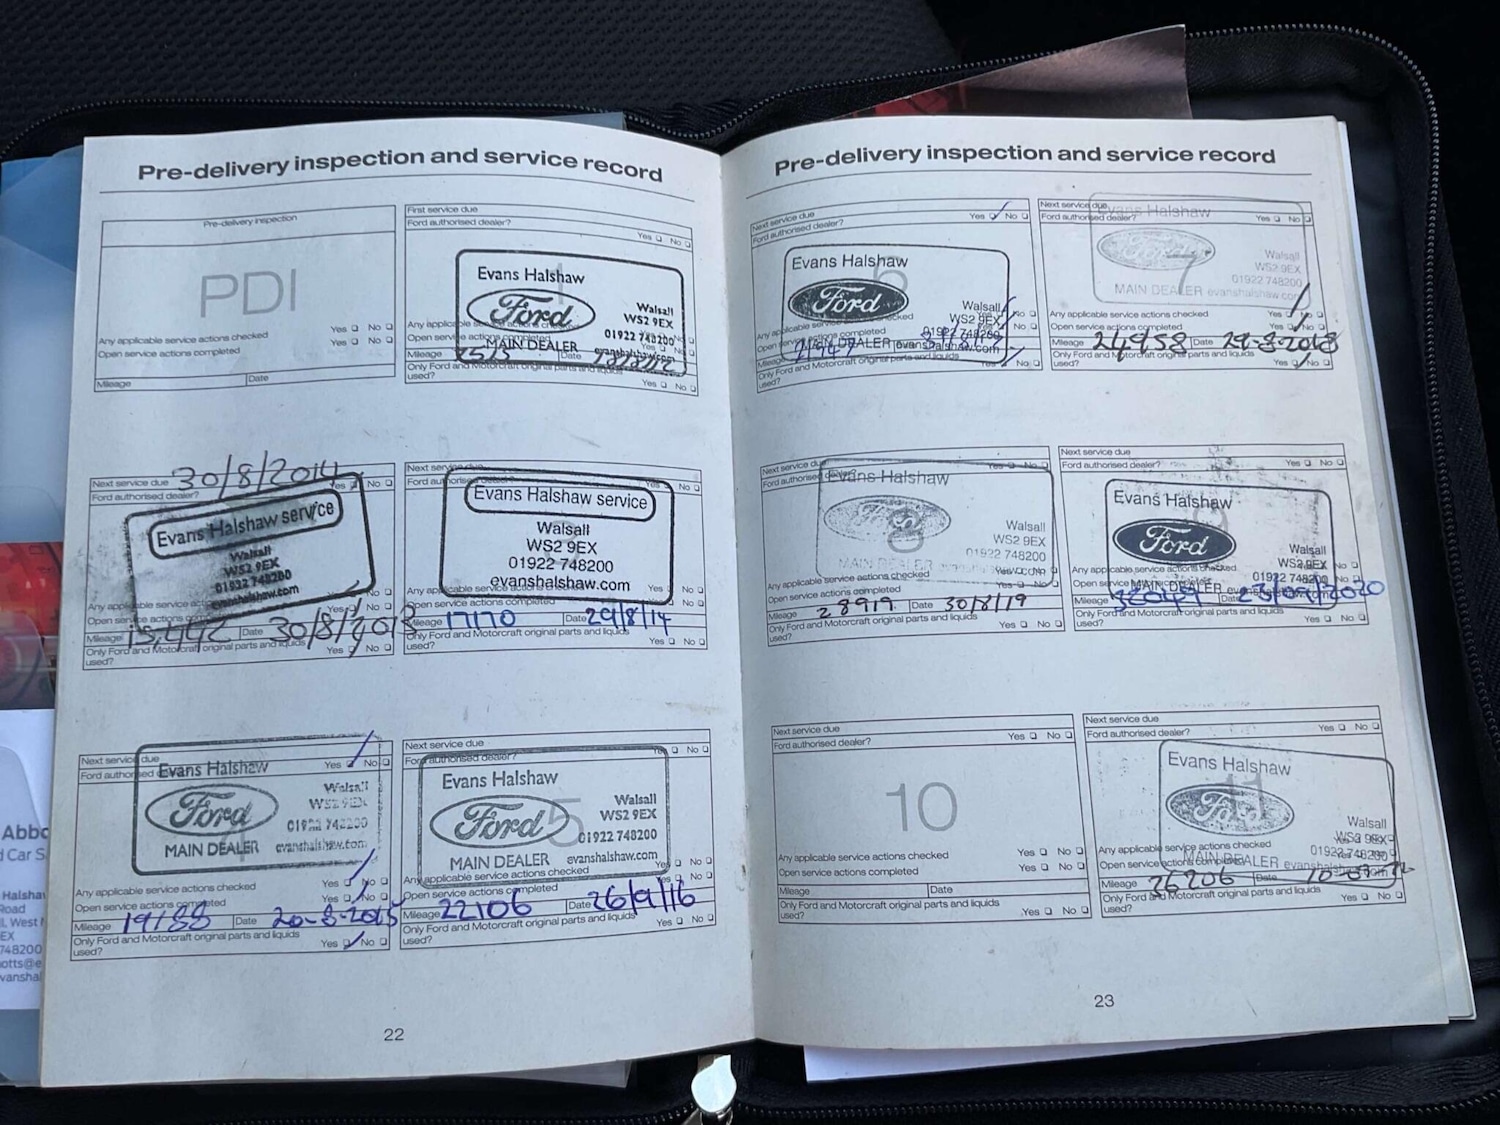 Pre-delivery inspection and service record
Pre-delivery inspection
PDI
Any applicable service actions checked Yes No
Open service actions completed Yes No
Mileage Date
First service due
Ford authorised dealer? Yes No
Evans Halshaw
Ford
Walsall
WS2 9EX
01922 748200
MAIN DEALER evanshalshaw.com
Any applicable service actions
Open service actions completed
Mileage 7515 Date
Only Ford and Motorcraft original parts and liquids
used? Yes No
Next service due 30/8/2014
Ford authorised dealer? Yes No
Evans Halshaw service
Walsall
WS2 9EX
01922 748200
evanshalshaw.com
Any applicable service
Open service actions
Mileage 15,442 Date 30/8/2013
Only Ford and Motorcraft original parts and liquids
used? Yes No
Next service due
Ford
Evans Halshaw service
Walsall
WS2 9EX
01922 748200
evanshalshaw.com
Any applicable service actions Yes No
Open service actions completed
Mileage 17170 Date 29/8/14
Only Ford and Motorcraft original parts and liquids
used? Yes No
Next service due
Ford authorised Yes No
Evans Halshaw
Ford
Walsall
WS2 9EX
01922 748200
MAIN DEALER evanshalshaw.com
4
Any applicable service actions checked Yes No
Open service actions completed Yes No
Mileage 19188 Date 20-8-2015
Only Ford and Motorcraft original parts and liquids
used? Yes No
Next service due
Ford authorised dealer? Yes No
Evans Halshaw
Ford
5
Walsall
WS2 9EX
01922 748200
MAIN DEALER evanshalshaw.com
Any applicable service actions checked Yes No
Open service actions completed Yes No
Mileage 22106 Date 26/9/16
Only Ford and Motorcraft original parts and liquids
used? Yes No
22
Pre-delivery inspection and service record
Next service due
Ford authorised dealer? Yes No
Evans Halshaw
6
Ford
Walsall
WS2 9EX
01922 748200
MAIN DEALER evanshalshaw.com
Any applicable service checked
Open service actions completed
Mileage
Only Ford and Motorcraft original parts and liquids
used? Yes No
Next service due
Ford authorised dealer? Yes No
Evans Halshaw
Ford
7
Walsall
WS2 9EX
01922 748200
MAIN DEALER evanshalshaw.com
Any applicable service actions checked Yes No
Open service actions completed Yes No
Mileage 24958 Date 29-8-2018
Only Ford and Motorcraft original parts and liquids
used? Yes No
Next service due
Ford authorised dealer? Yes No
Evans Halshaw
8
Walsall
WS2 9EX
01922 748200
MAIN DEALER
Any applicable service actions checked Yes
Open service actions completed Yes No
Mileage 28919 Date 30/8/19
Only Ford and Motorcraft original parts and liquids
used? Yes No
Next service due
Ford authorised dealer? Yes No
Evans Halshaw
9
Ford
Walsall
WS2 9EX
01922 748200
MAIN DEALER
Any applicable service actions checked
Open service
Mileage
Only Ford and Motorcraft original parts and liquids
used? Yes No
Next service due
Ford authorised dealer? Yes No
10
Any applicable service actions checked Yes No
Open service actions completed Yes No
Mileage Date
Only Ford and Motorcraft original parts and liquids
used? Yes No
Next service due
Ford authorised dealer? Yes No
Evans Halshaw
11
Ford
Walsall
WS2 9EX
01922 748200
MAIN DEALER
Any applicable service actions checked
Open service actions completed
Mileage 26206 Date
Only Ford and Motorcraft original parts and liquids
used? Yes No
23
Abbo
Car S
Halsha
Road
West
EX
748200
otts@e
vansha